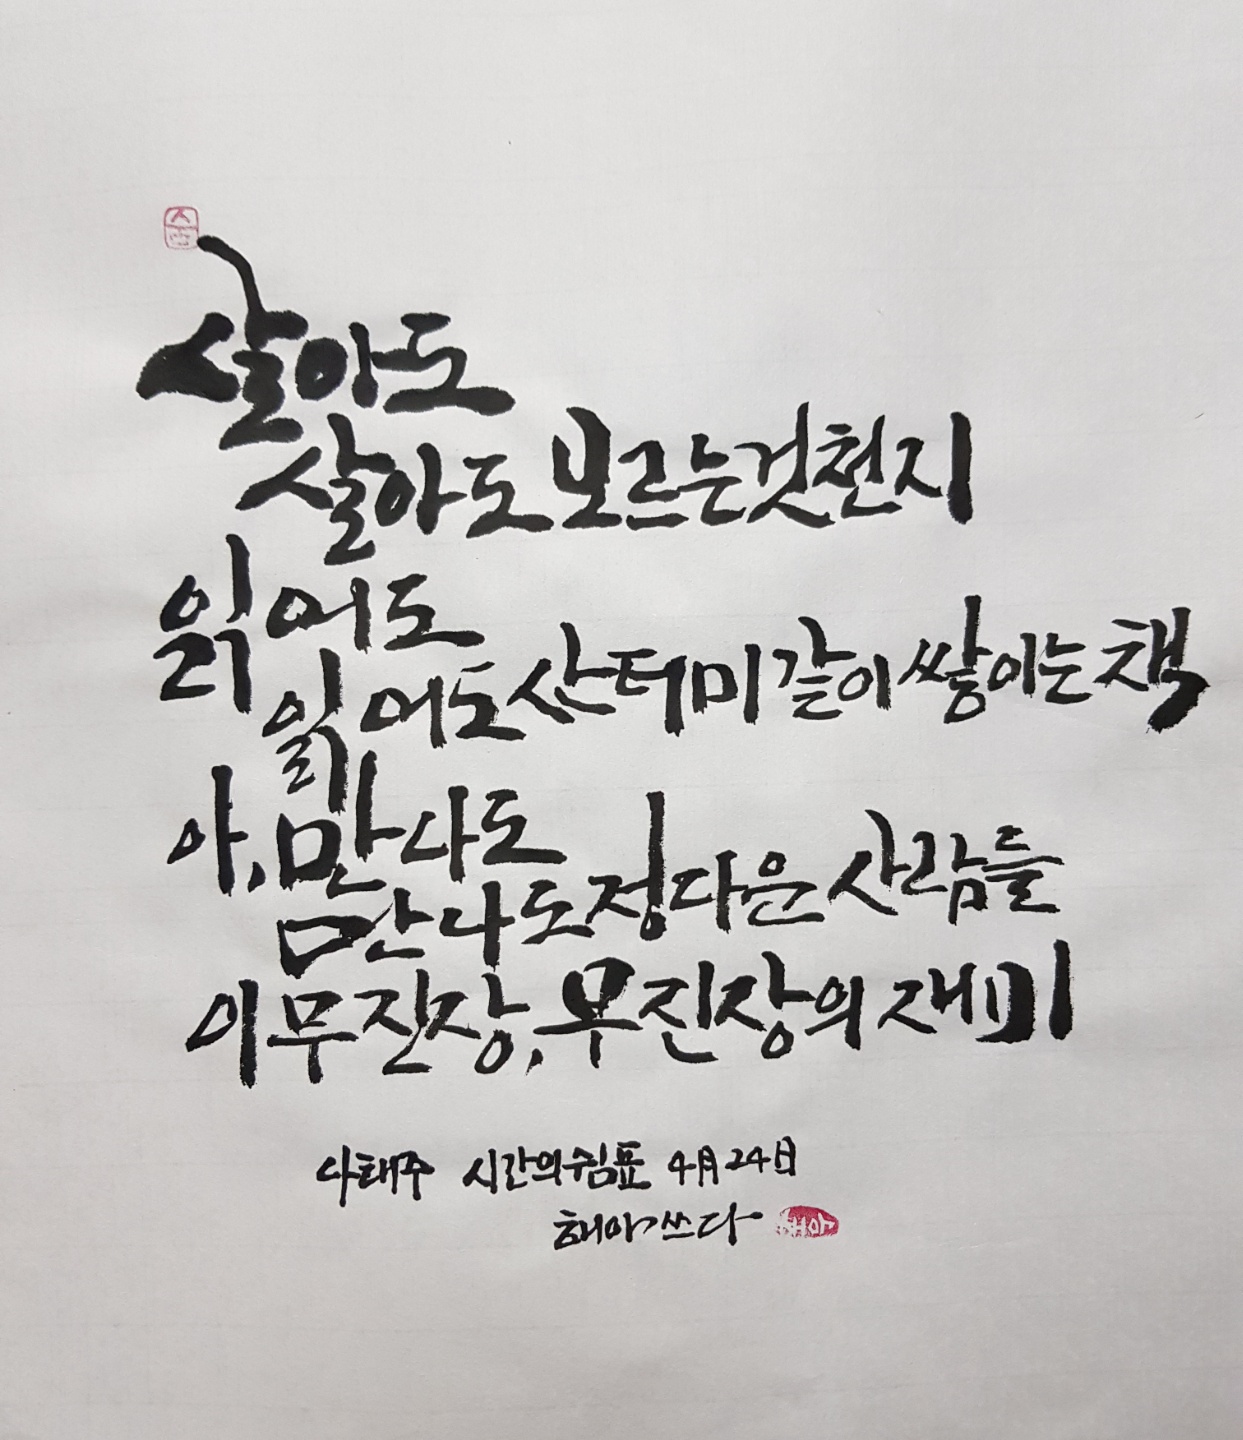 살아도
살아도 모르는것천지
읽어도
읽어도 산더미같이 쌓이는 책
아, 만나도
만나도 정다운 사람들
이 무진장, 무진장의 재미
나태주 시간의쉼표 4月24日
해아쓰다
해아